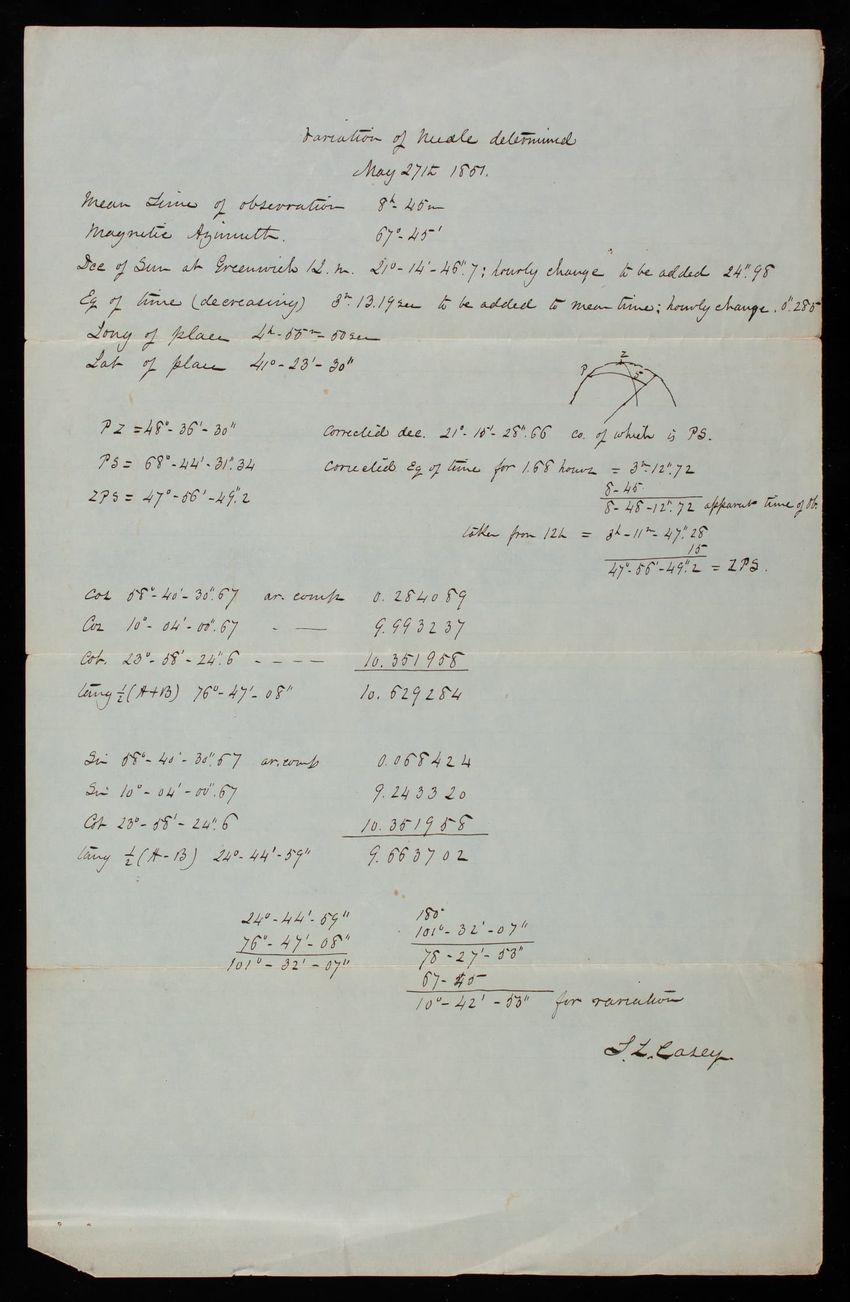 Variation of Needle determined
May 27th 1851.
Mean Time of observation 8h-45m
Magnetic Azimuth. 67°-45'
Dec of Sun at Greenwich 12. m. 21°-14'-46".7; hourly change to be added 24".98
Eq of time (decreasing) 3m.13.19sec to be added to mean time; hourly change. 0".285
Long of place 4h-55m-50sec
Lat of place 41°-23'-30"
P Z S
PZ = 48°-36'-30" Corrected dec. 21°-15'-28".66 co. of which is PS.
PS = 68°-44'-31".34 Corrected Eq of time for 1.68 hours = 3m-12".72
ZPS = 47°-56'-49".2 8-45
8-48-12".72 apparent time of Ob.
taken from 12h = 3h-11m-47".28
15
47°-56'-49".2 = ZPS.
Cos 58°-40'-30".67 ar. comp 0.284089
Cos 10°-04'-00".67 - — 9.993237
Cot. 23°-58'-24".6 - - - - 10.351958
tang ½(A+B) 76°-47'-08" 10.629284
Sin 58°-40'-30".67 ar. comp 0.068424
Sin 10°-04'-00".67 9.243320
Cot 23°-58'-24".6 10.351958
tang ½(A-B) 24°-44'-59" 9.663702
24°-44'-59" 180°
76°-47'-08" 101°-32'-07"
101°-32'-07" 78-27'-53"
67-45
10°-42'-53" for variation
T. L. Casey